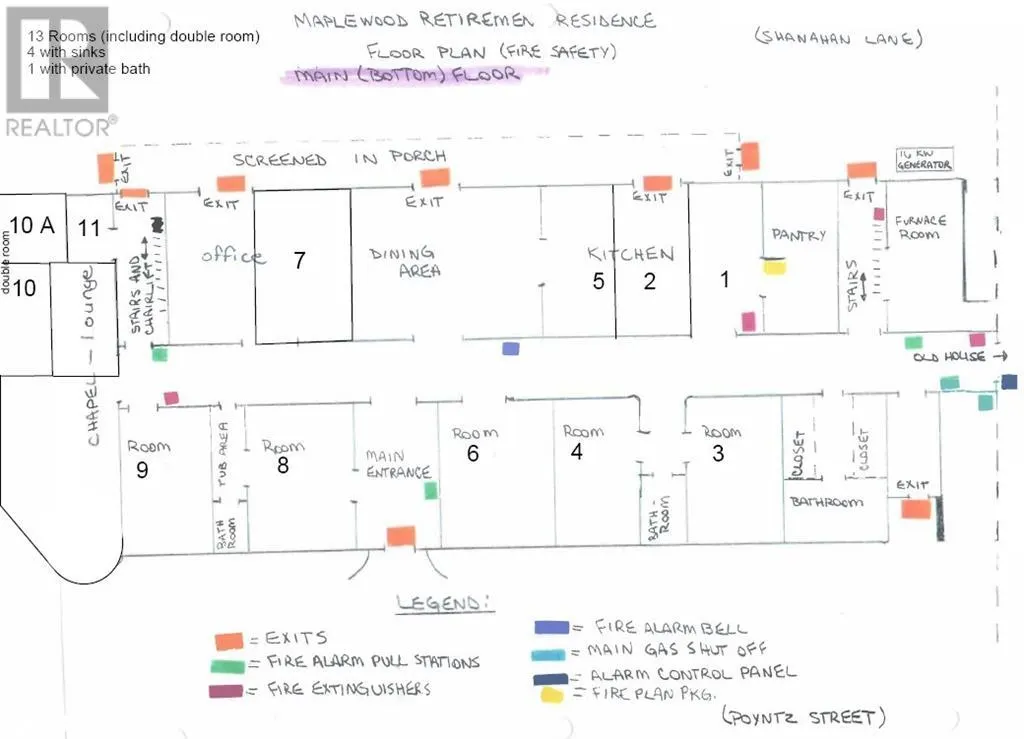 MAPLEWOOD RETIREMEN RESIDENCE
13 Rooms (including double room)
4 with sinks
1 with private bath
FLOOR PLAN (FIRE SAFETY)
(SHANAHAN LANE)
MAIN (BOTTOM) FLOOR
REALTOR®
SCREENED IN PORCH
EXIT
EXIT
16 KW
GENERATOR
EXIT
EXIT
EXIT
EXIT
EXIT
10 A
11
double room
10
office
7
DINING
AREA
KITCHEN
5
2
1
PANTRY
FURNACE
ROOM
STAIRS AND
CHAIRLIFT
STAIRS
CHAPEL - lounge
OLD HOUSE →
Room
9
TUB AREA
BATH
ROOM
Room
8
MAIN
ENTRANCE
Room
6
Room
4
BATH-
ROOM
Room
3
CLOSET
CLOSET
BATHROOM
EXIT
LEGEND:
= EXITS
= FIRE ALARM PULL STATIONS
= FIRE EXTINGUISHERS
= FIRE ALARM BELL
= MAIN GAS SHUT OFF
= ALARM CONTROL PANEL
= FIRE PLAN PKG.
(POYNTZ STREET)